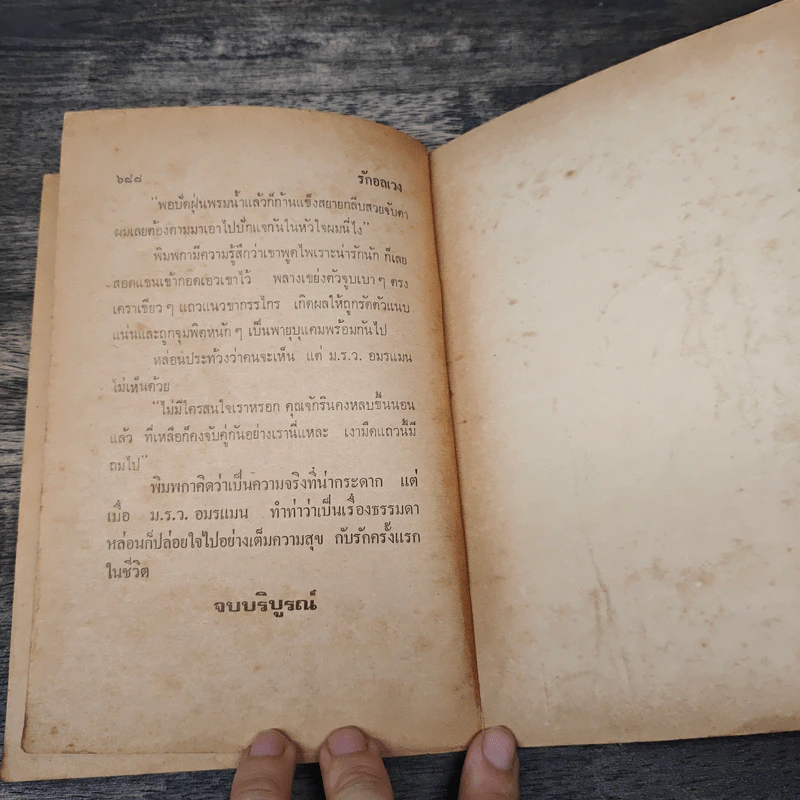 ๖๘๘ รักอลเวง
"พอปัดฝุ่นพรมน้ำแล้วก็ก้านแข็งสยายกลีบสวยจับตา
ผมเลยต้องตามมาเอาไปปักแจกันในหัวใจผมนี่ไง"
พิมพกามีความรู้สึกว่าเขาพูดไพเราะน่ารักนัก ก็เลย
สอดแขนเข้ากอดเอวเขาไว้ พลางเขย่งตัวจูบเบาๆ ตรง
เคราเขียวๆ แถวแนวขากรรไกร เกิดผลให้ถูกรัดตัวแนบ
แน่นและถูกจุมพิตหนักๆ เป็นพายุบุแคมพร้อมกันไป
หล่อนประท้วงว่าคนจะเห็น แต่ ม.ร.ว. อมรแมน
ไม่เห็นด้วย
"ไม่มีใครสนใจเราหรอก คุณจักรินคงหลบขึ้นนอน
แล้ว ที่เหลือก็คงจับคู่กันอย่างเรานี่แหละ เงามืดแถวนี้มี
ถมไป"
พิมพกาคิดว่าเป็นความจริงที่น่ากระดาก แต่
เมื่อ ม.ร.ว. อมรแมน ทำท่าว่าเป็นเรื่องธรรมดา
หล่อนก็ปล่อยใจไปอย่างเต็มความสุข กับรักครั้งแรก
ในชีวิต
จบบริบูรณ์